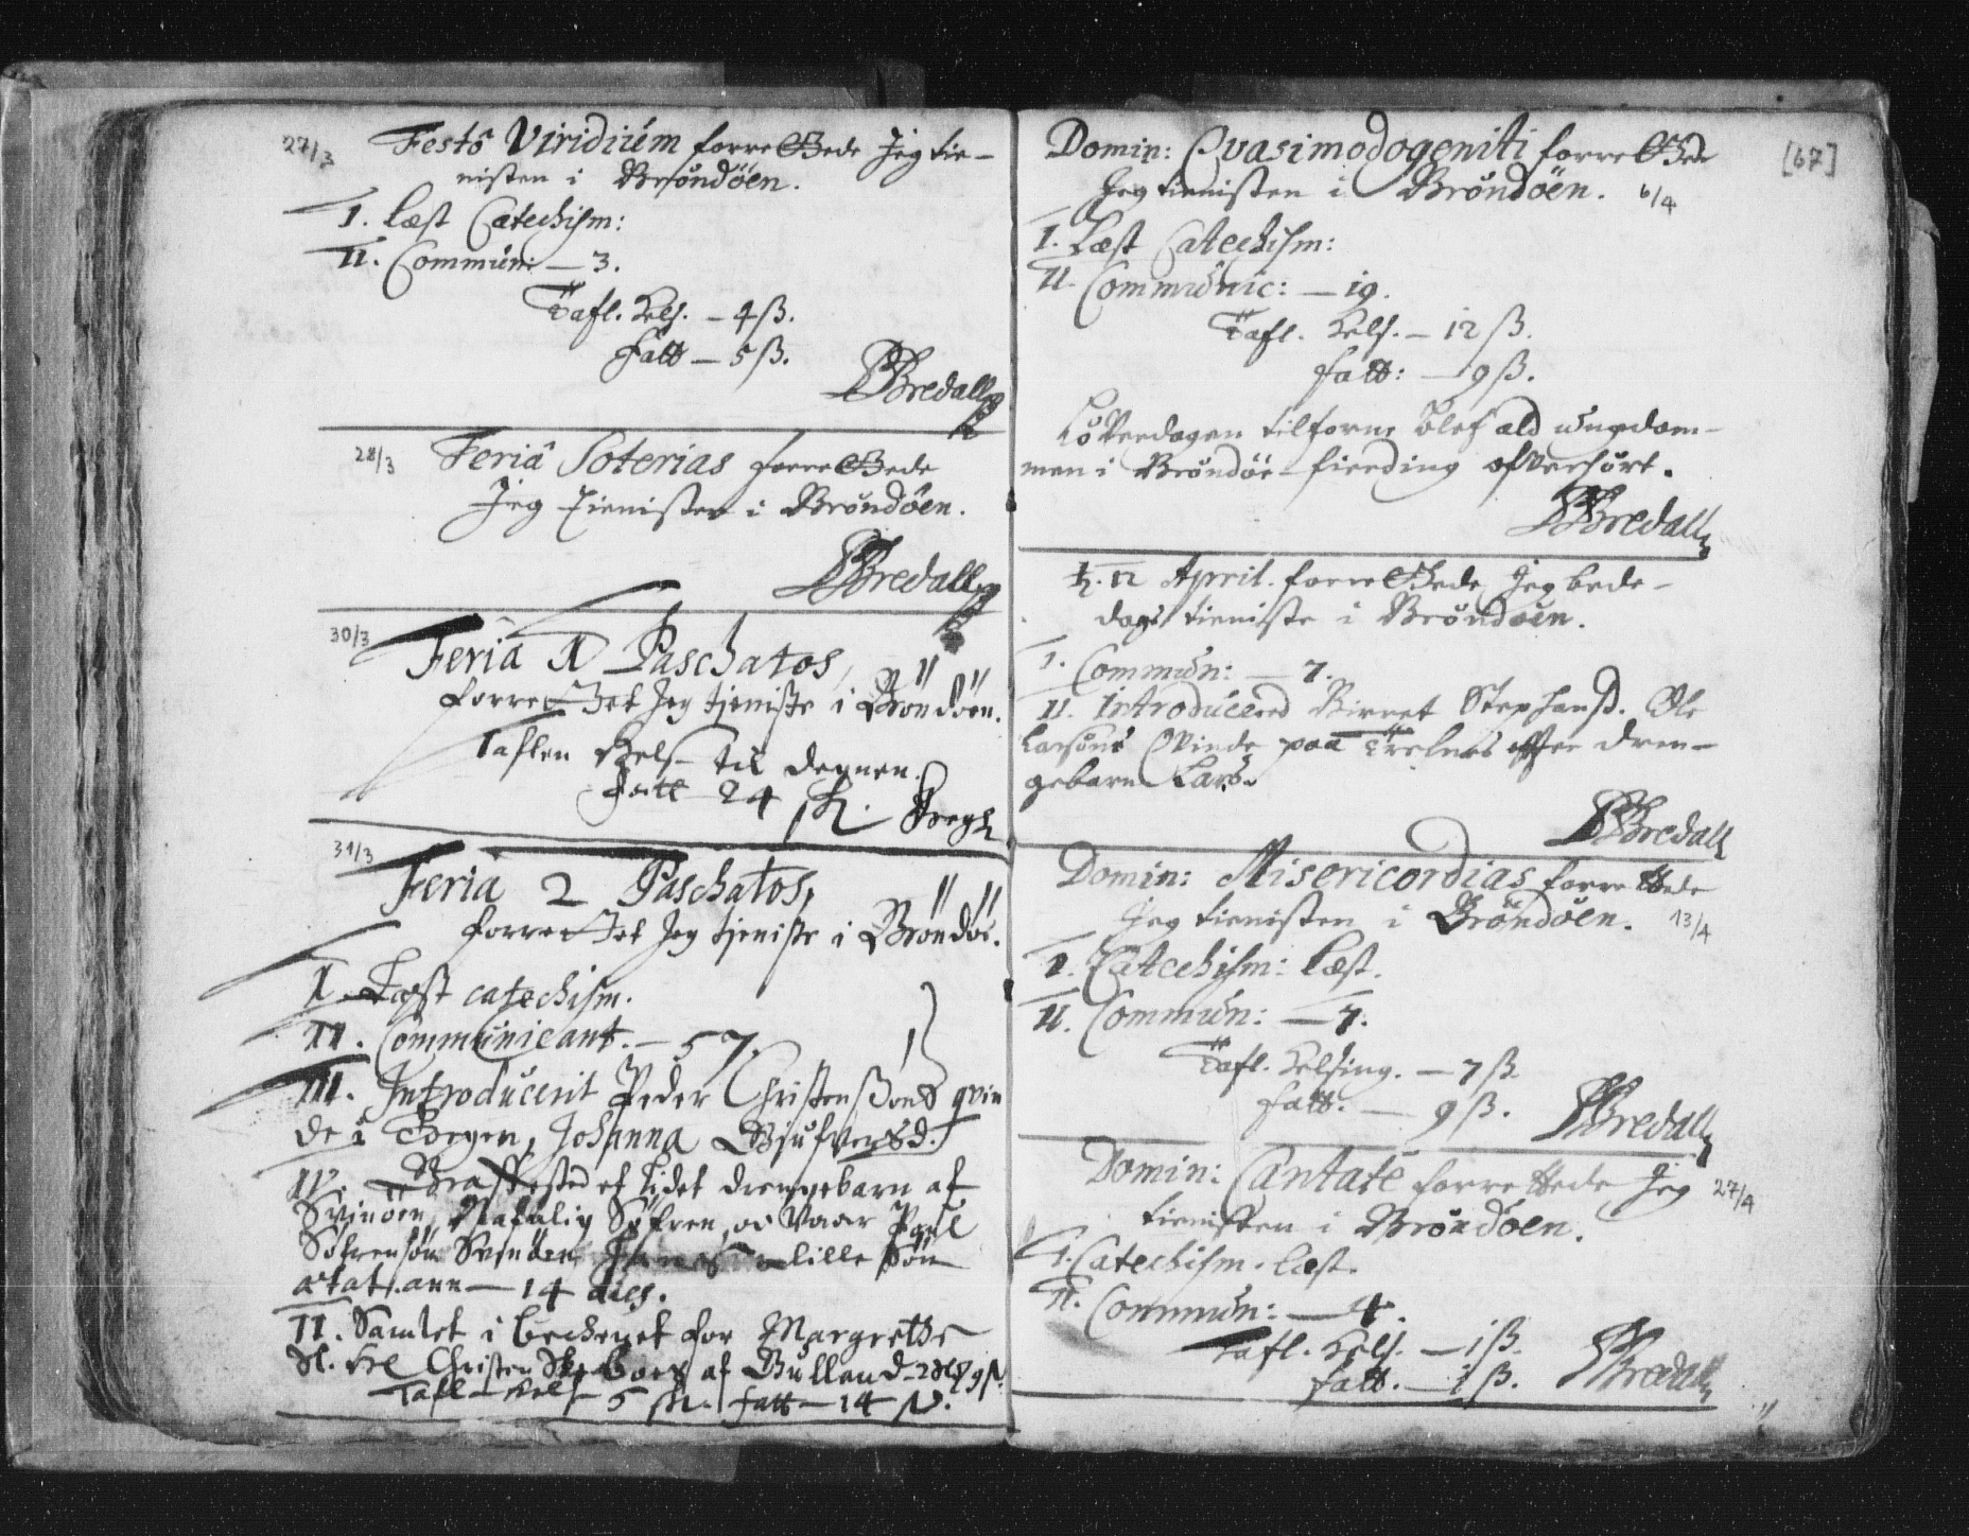 27/3 Festo Viridium forrettede Jeg tie-
nisten i Brøndöen.
I. Læst Catechism:
II. Commun: — 3.
Tafl. Hels. — 4 ß.
Fatt — 5 ß.
Bredall
28/3 Feriâ Soterias forrettede
Jeg Tienisten i Bröndöen.
Bredall
30/3 Feria 1 Paschatos,
forrettet Jeg tjeniste i Bröndöen.
Taflen Hels til degnen.
Fatt 24 ß.
31/3
Feria 2 Paschatos,
forrettet Jeg tjeniste i Bröndöe.
I. Læst catechism.
II. Communicant. — 57.
III. Introducerit Peder Christenßøns qvin
de i Torgen, Johanna
IV. et lidet drengebarn af
Svinöen, Söfren, Vaar Poul
Söfrensön Svinöen lille Sön
ætat. ann — 14 dies.
II. Samlet i for Margrethe
Sl. Christen af
Tafl — Hels 5 ß. fatt — 14 ß.
[67]
Domin: Qvasimodogeniti forrettede
Jeg tienisten i Bröndöen. 6/4
I. Læst Catechism:
II. Communic: — 19.
Tafl. Hels. — 12 ß.
fatt: — 9 ß.
Löverdagen tilforne blef ald ungdom-
men i Bröndöe fierding ofverhört.
Bredall
ħ. 12 April. forrettede Jeg bede-
dags tieniste i Bröndöen.
I. Commun: — 7.
II. Introducered Birret Stephansd. Ole
Larsöns Qvinde paa Trelnes efter dren-
gebarn Lars.
Bredall
Domin: Misericordias forrettede
Jeg tienisten i Bröndöen. 13/4
I. Catechism: læst.
II. Commun: — 7.
Tafl. Helsing. — 7 ß.
fatt. — 9 ß.
Bredall
Domin: Cantate forrettede Jeg 27/4
tienisten i Bröndöen.
I. Catechism. læst.
II. Commun: — 4.
Tafl. Hels. — 1 ß.
fatt. — 1 ß.
Bredall